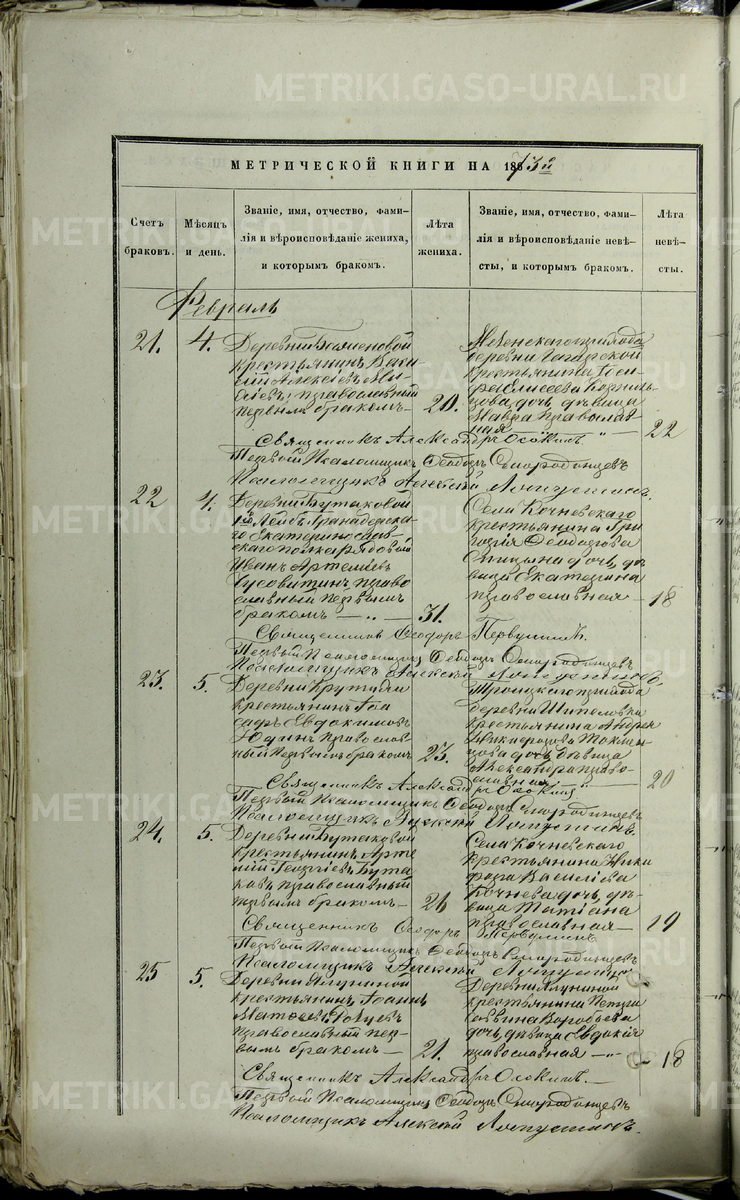 METRIKI.GASO-URAL.RU
МЕТРИЧЕСКОЙ КНИГИ НА 1873й
Счетъ браковъ.
Мѣсяцъ и день.
Званіе, имя, отчество, фами-
лія и вѣроисповѣданіе жениха,
и которымъ бракомъ.
Лѣта жениха.
Званіе, имя, отчество, фами-
лія и вѣроисповѣданіе невѣ-
сты, и которымъ бракомъ.
Лѣта невѣ-
сты.
Февраль
21. 4.
Деревни
крестьянинъ Васи-
лій Алексіевъ
православный
первымъ бракомъ
20.
прихода
деревни
крестьянина
Елисеева
дочь, дѣвица
Мавра православ-
ная
22
Священникъ Александръ Осокинъ
Первый Псаломщикъ Ѳеодоръ Смородинцевъ
Псаломщикъ Алексѣй
22 4.
Деревни Бутаковой
Лейбъ Гранадерска-
го Екатеринослав-
скаго полка рядовой
Иванъ Артеміевъ
право-
славный первымъ
бракомъ
31.
Села Кочневскаго
крестьянина Гри-
горія Ѳеодорова
дочь, дѣ-
вица Екатерина
православная
18
Священникъ Ѳеодоръ Первушинъ.
Первый Псаломщикъ Ѳеодоръ Смородинцевъ
Псаломщикъ Алексѣй
23. 5.
Деревни
крестьянинъ
Евдокимовъ
Юдинъ православ-
ный первымъ бракомъ
23.
Троицкаго прихода
деревни Шипеловки
крестьянина Андрея
Никифорова
дочь дѣвица
Александра право-
славная
20
Священникъ Александръ Осокинъ
Первый Псаломщикъ Ѳеодоръ Смородинцевъ
Псаломщикъ Алексѣй
24. 5.
Деревни Бутаковой
крестьянинъ Арте-
мій Георгіевъ Бута-
ковъ православный
первымъ бракомъ
26
Села Кочневскаго
крестьянина Ники-
фора Василіева
Кочнева дочь, дѣ-
вица Татіана
православная
19
Священникъ Ѳеодоръ Первушинъ
Первый Псаломщикъ Ѳеодоръ Смородинцевъ
Псаломщикъ Алексѣй
25 5.
Деревни Ялуниной
крестьянинъ Іоаннъ
православный пер-
вымъ бракомъ
21.
Деревни Ялуниной
крестьянина Петра
Саввина Воробьева
дочь, дѣвица Евдокія
православная
18
Священникъ Александръ Осокинъ.
Первый Псаломщикъ Ѳеодоръ Смородинцевъ
Псаломщикъ Алексѣй